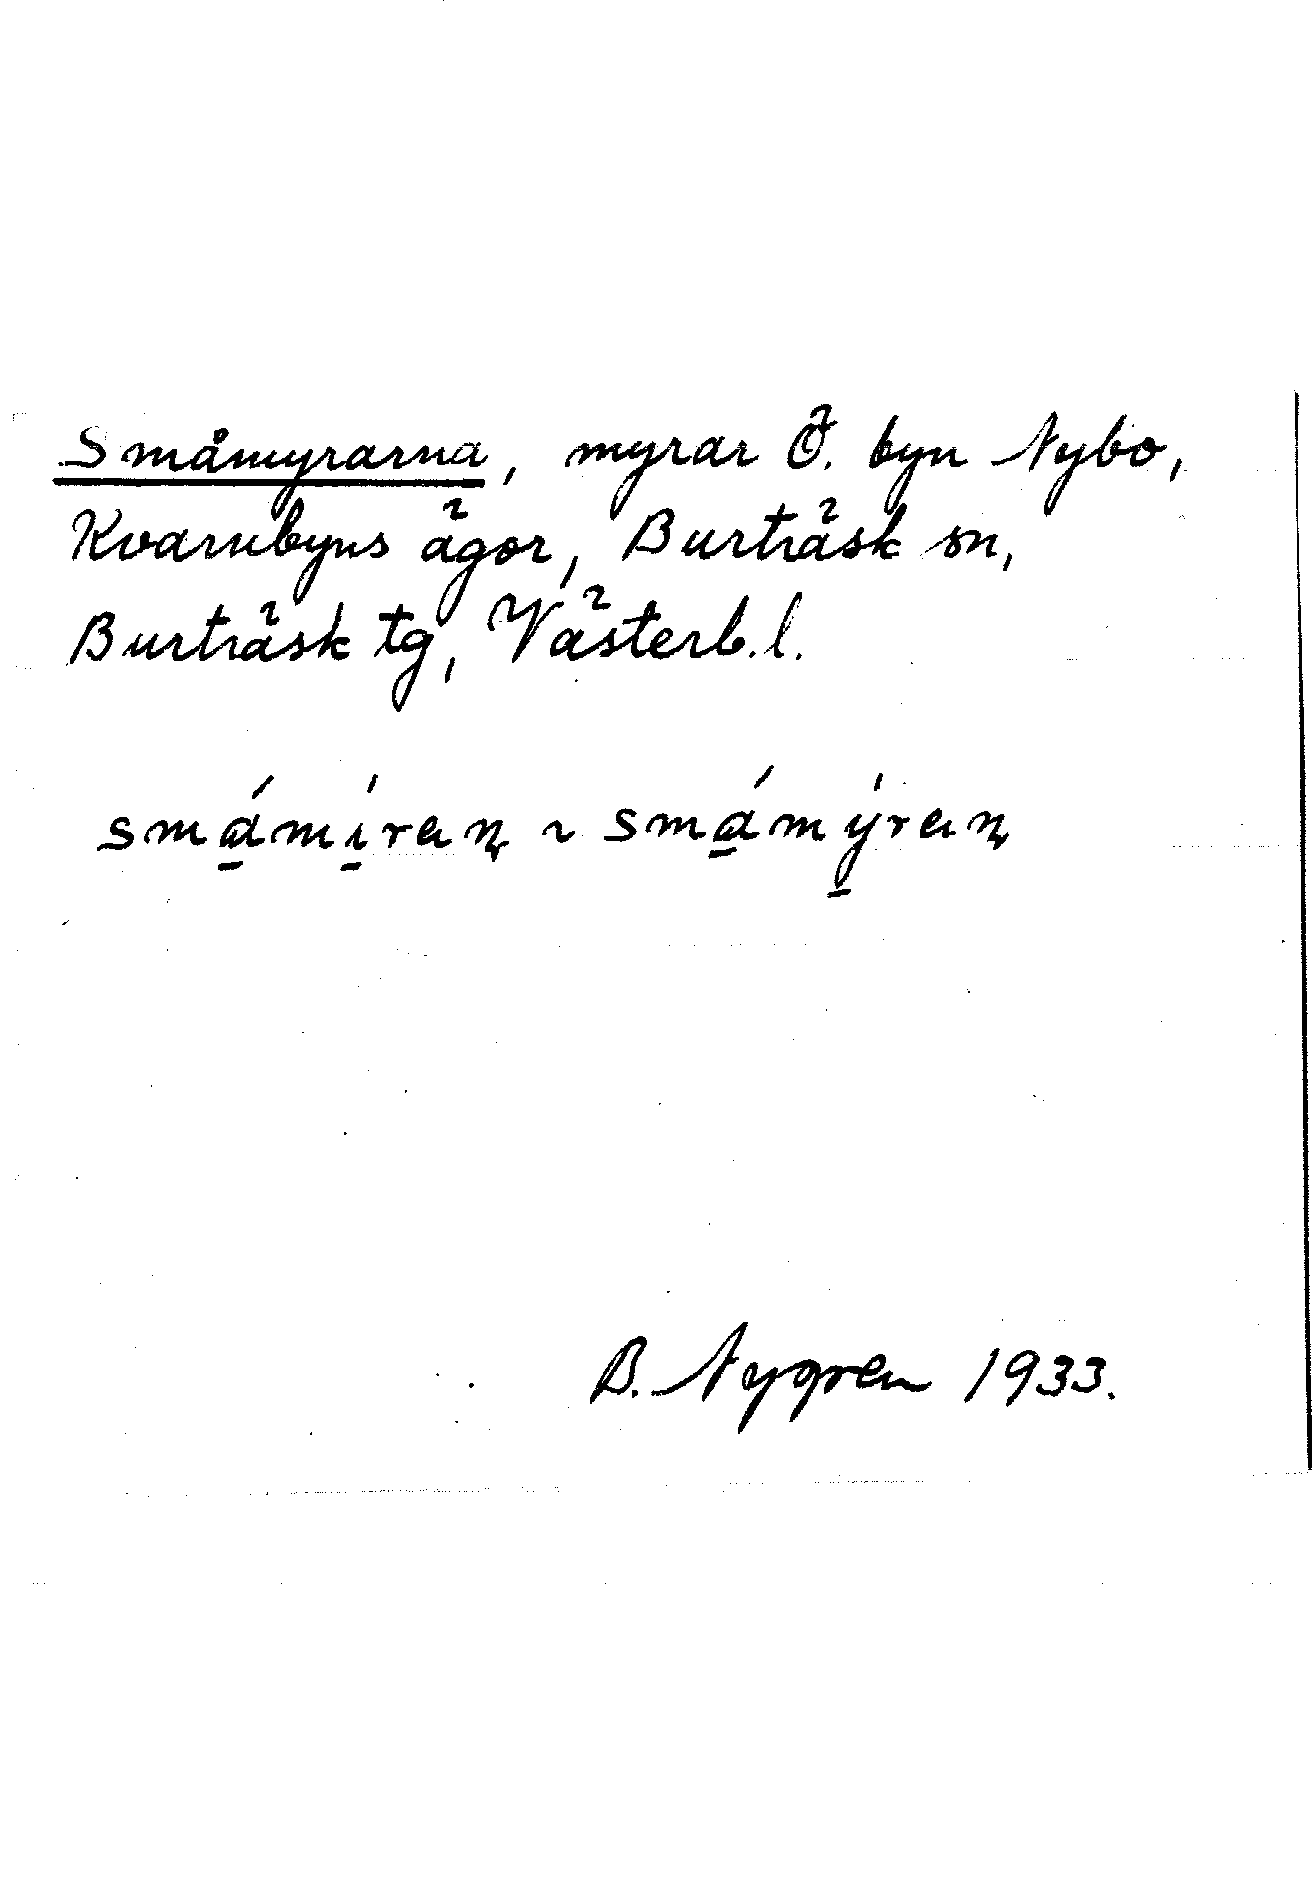 Småmyrarna, myrar Ö. byn Nybo,
Kvarnbyns ägor, Burträsk sn,
Burträsk tg, Västerb. l.
smá̱mí̱raɳ ~ smá̱mý̱raɳ
B. Nygren 1933.